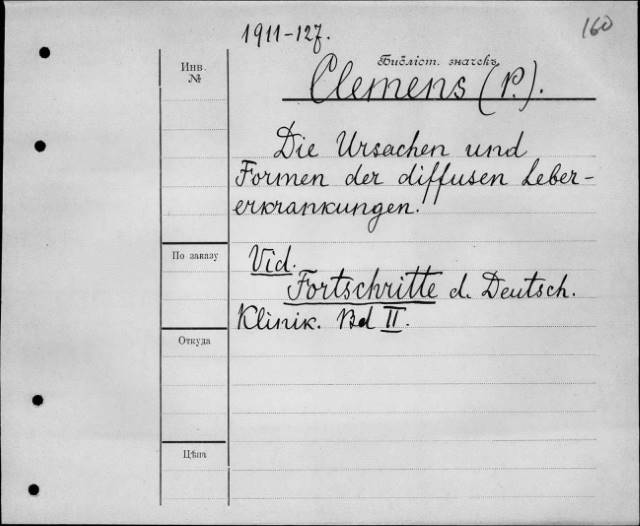 1911-127.
160
Библіот. значекъ
Инв.
№
Clemens (P.).
Die Ursachen und
Formen der diffusen Leber-
erkrankungen.
По заказу
Vid.
Fortschritte d. Deutsch.
Klinik. Bd II.
Откуда
Цѣна